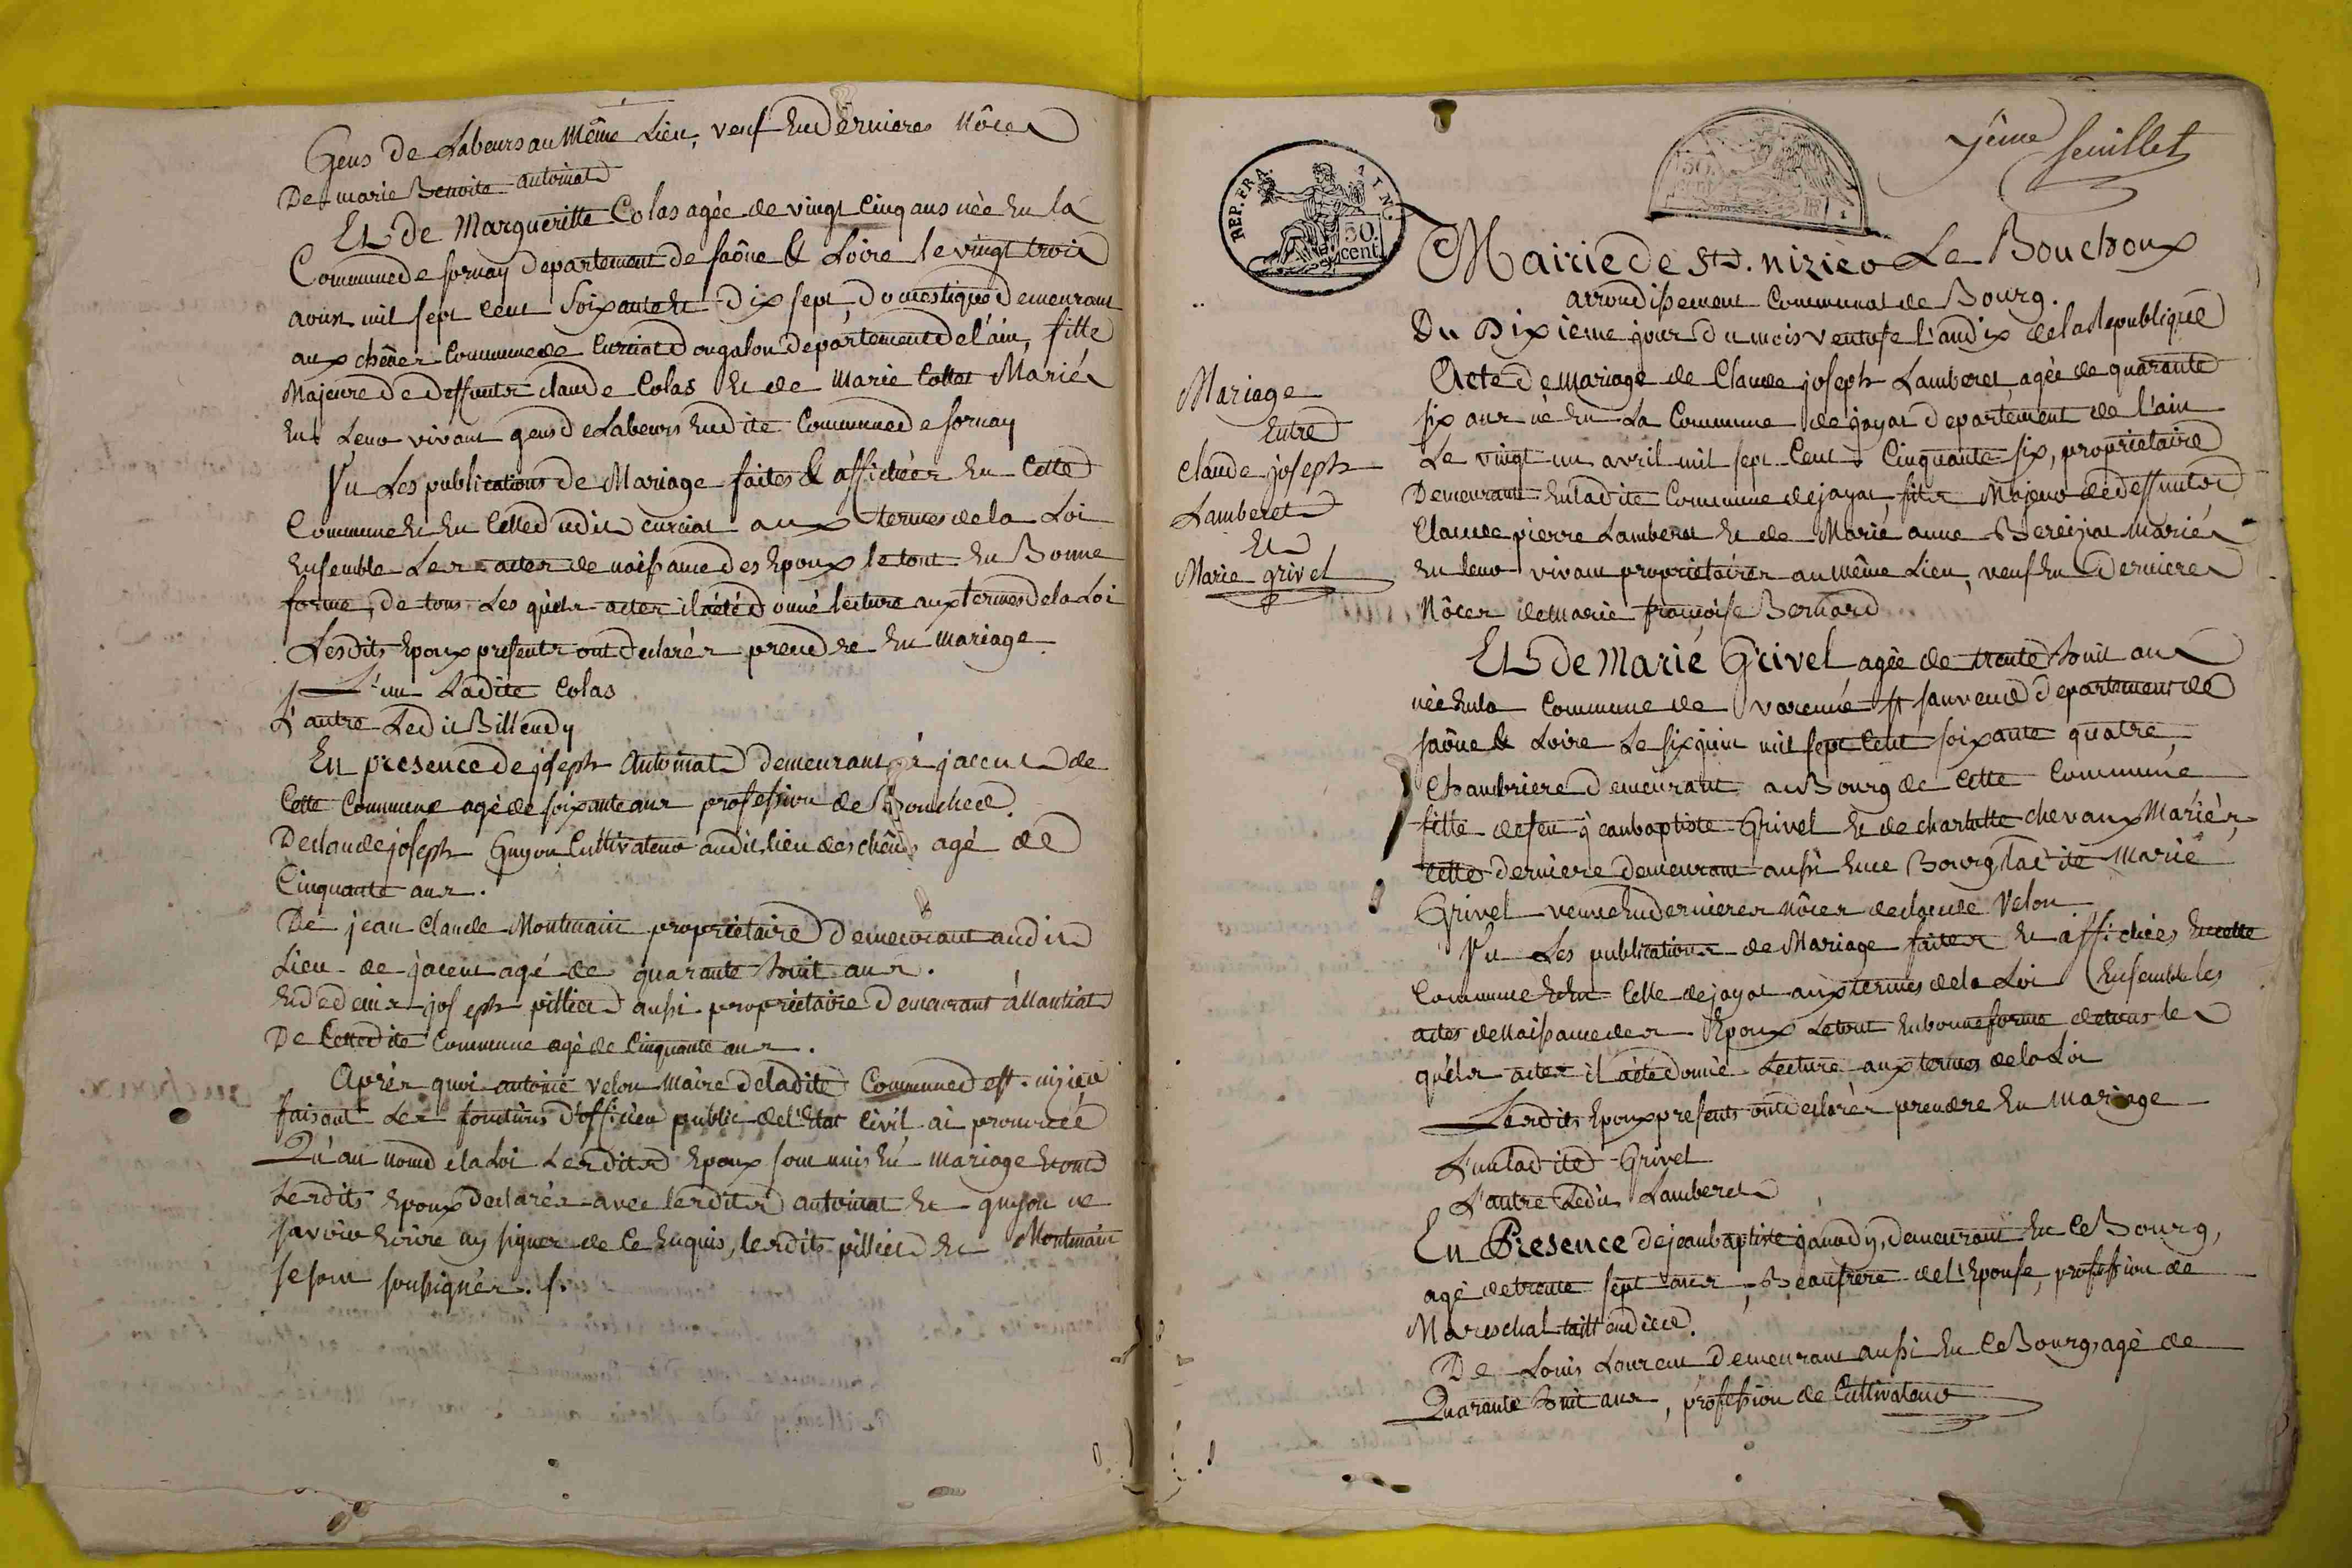 Gens de Labeurs au Même Lieu, veuf En Dernieres Nôces
De marie Benoite Antoinat
Et de Margueritte Colas agée de vingt Cinq ans née En la
Commune de sornay Departement de saône & Loire le vingt trois
avril mil sept cent soixante et dix sept, Domestique Demeurant
aux chênes Commune de Curciat Dongalon Département de l'ain, fille
Majeure de Deffunts claude Colas Et de Marie Collat Mariés
En Leur vivant gens de Labeurs En dite Commune de sornay
Vu Les publications de Mariage faites & affichées En Cette
Commune Et En Celle dudit curciat aux termes de la Loi
Ensemble Les actes de naissance des Epoux le tout En Bonne
forme, de tous Les quels actes il a été Donné lecture aux termes de la Loi
Lesdits Epoux presents ont declarés prendre En Mariage
L'un Ladite Colas
L'autre Ledit Billendy
En presence de joseph Antoinat Demeurant à jaceu de
Cette Commune agé de soixante ans profession de
De claude joseph Guyon Cultivateur audit lieu des chênes agé de
Cinquante ans.
De jean Claude Montmain propriétaire Demeurant audit
Lieu de jaceu agé de quarante huit ans.
Et de denis joseph pillier aussi propriétaire Demeurant
De Cettedite Commune agé de Cinquante ans.
Après quoi antoine velon Maire de ladite Commune de st. nizier
faisant Les fonctions d'officier public de l'Etat Civil ai prononcé
Qu'au nom de la Loi Lesdits Epoux sont unis En mariage Et ont
Lesdits Epoux Declarés avec lesdits antoinat Et guyon ne
savoir Ecrire ny signer de Ce Enquis, lesdits pillier Et Montmain
se sont soussignés.
REP. FRA.
AIN.
50. cent
50.
feuillet
Mairie de St. nizier Le Bouchoux
arrondissement Communal de Bourg.
Du Dixieme jour du mois ventose l'an dix de la Republique
Mariage
Entre
claude joseph
Lamberet
Et
Marie grivel
Acte de Mariage de Claude joseph Lamberet agée de quarante
six ans né En La Commune de jayat Departement de l'ain
Le vingt un avril mil sept Cent Cinquante six, propriétaire
Demeurant En ladite Commune de jayat, fils Majeur de deffunts
Claude pierre Lamberet Et de Marie anne Bereizia Mariés
En leur vivant propriétaires au même Lieu, veuf En Dernieres
Nôces de Marie françoise Bernard
Et de Marie Grivel agée de trente huit ans
née En la Commune de varenne st sauveur Departement de
saône & Loire Le six juin mil sept Cent soixante quatre,
Chambriere Demeurant au Bourg de Cette Commune
fille de feu jean baptiste Grivel Et de charlotte chevaux Mariés,
Cette derniere demeurant aussi En ce Bourg, ladite Marie
Grivel veuve En dernieres nôces de claude Velon
Vu Les publications de Mariage faites Et affichées En cette
Commune Et En Celle de jayat aux termes de la Loi Ensemble les
actes de Naissance des Epoux Le tout En bonne forme de tous les
quels actes il a été donné Lecture aux termes de la Loi
Lesdits Epoux presents ont declarés prendre En Mariage
L'un ladite Grivel
L'autre Ledit Lamberet
En Presence de jean baptiste ganody, Demeurant En ce Bourg,
agé de trente sept ans, Beaufrere de l'Epouse, profession de
Mareschal taillandier.
De Louis Laurent Demeurant aussi En ce Bourg, agé de
Quarante huit ans, profession de Cultivateur